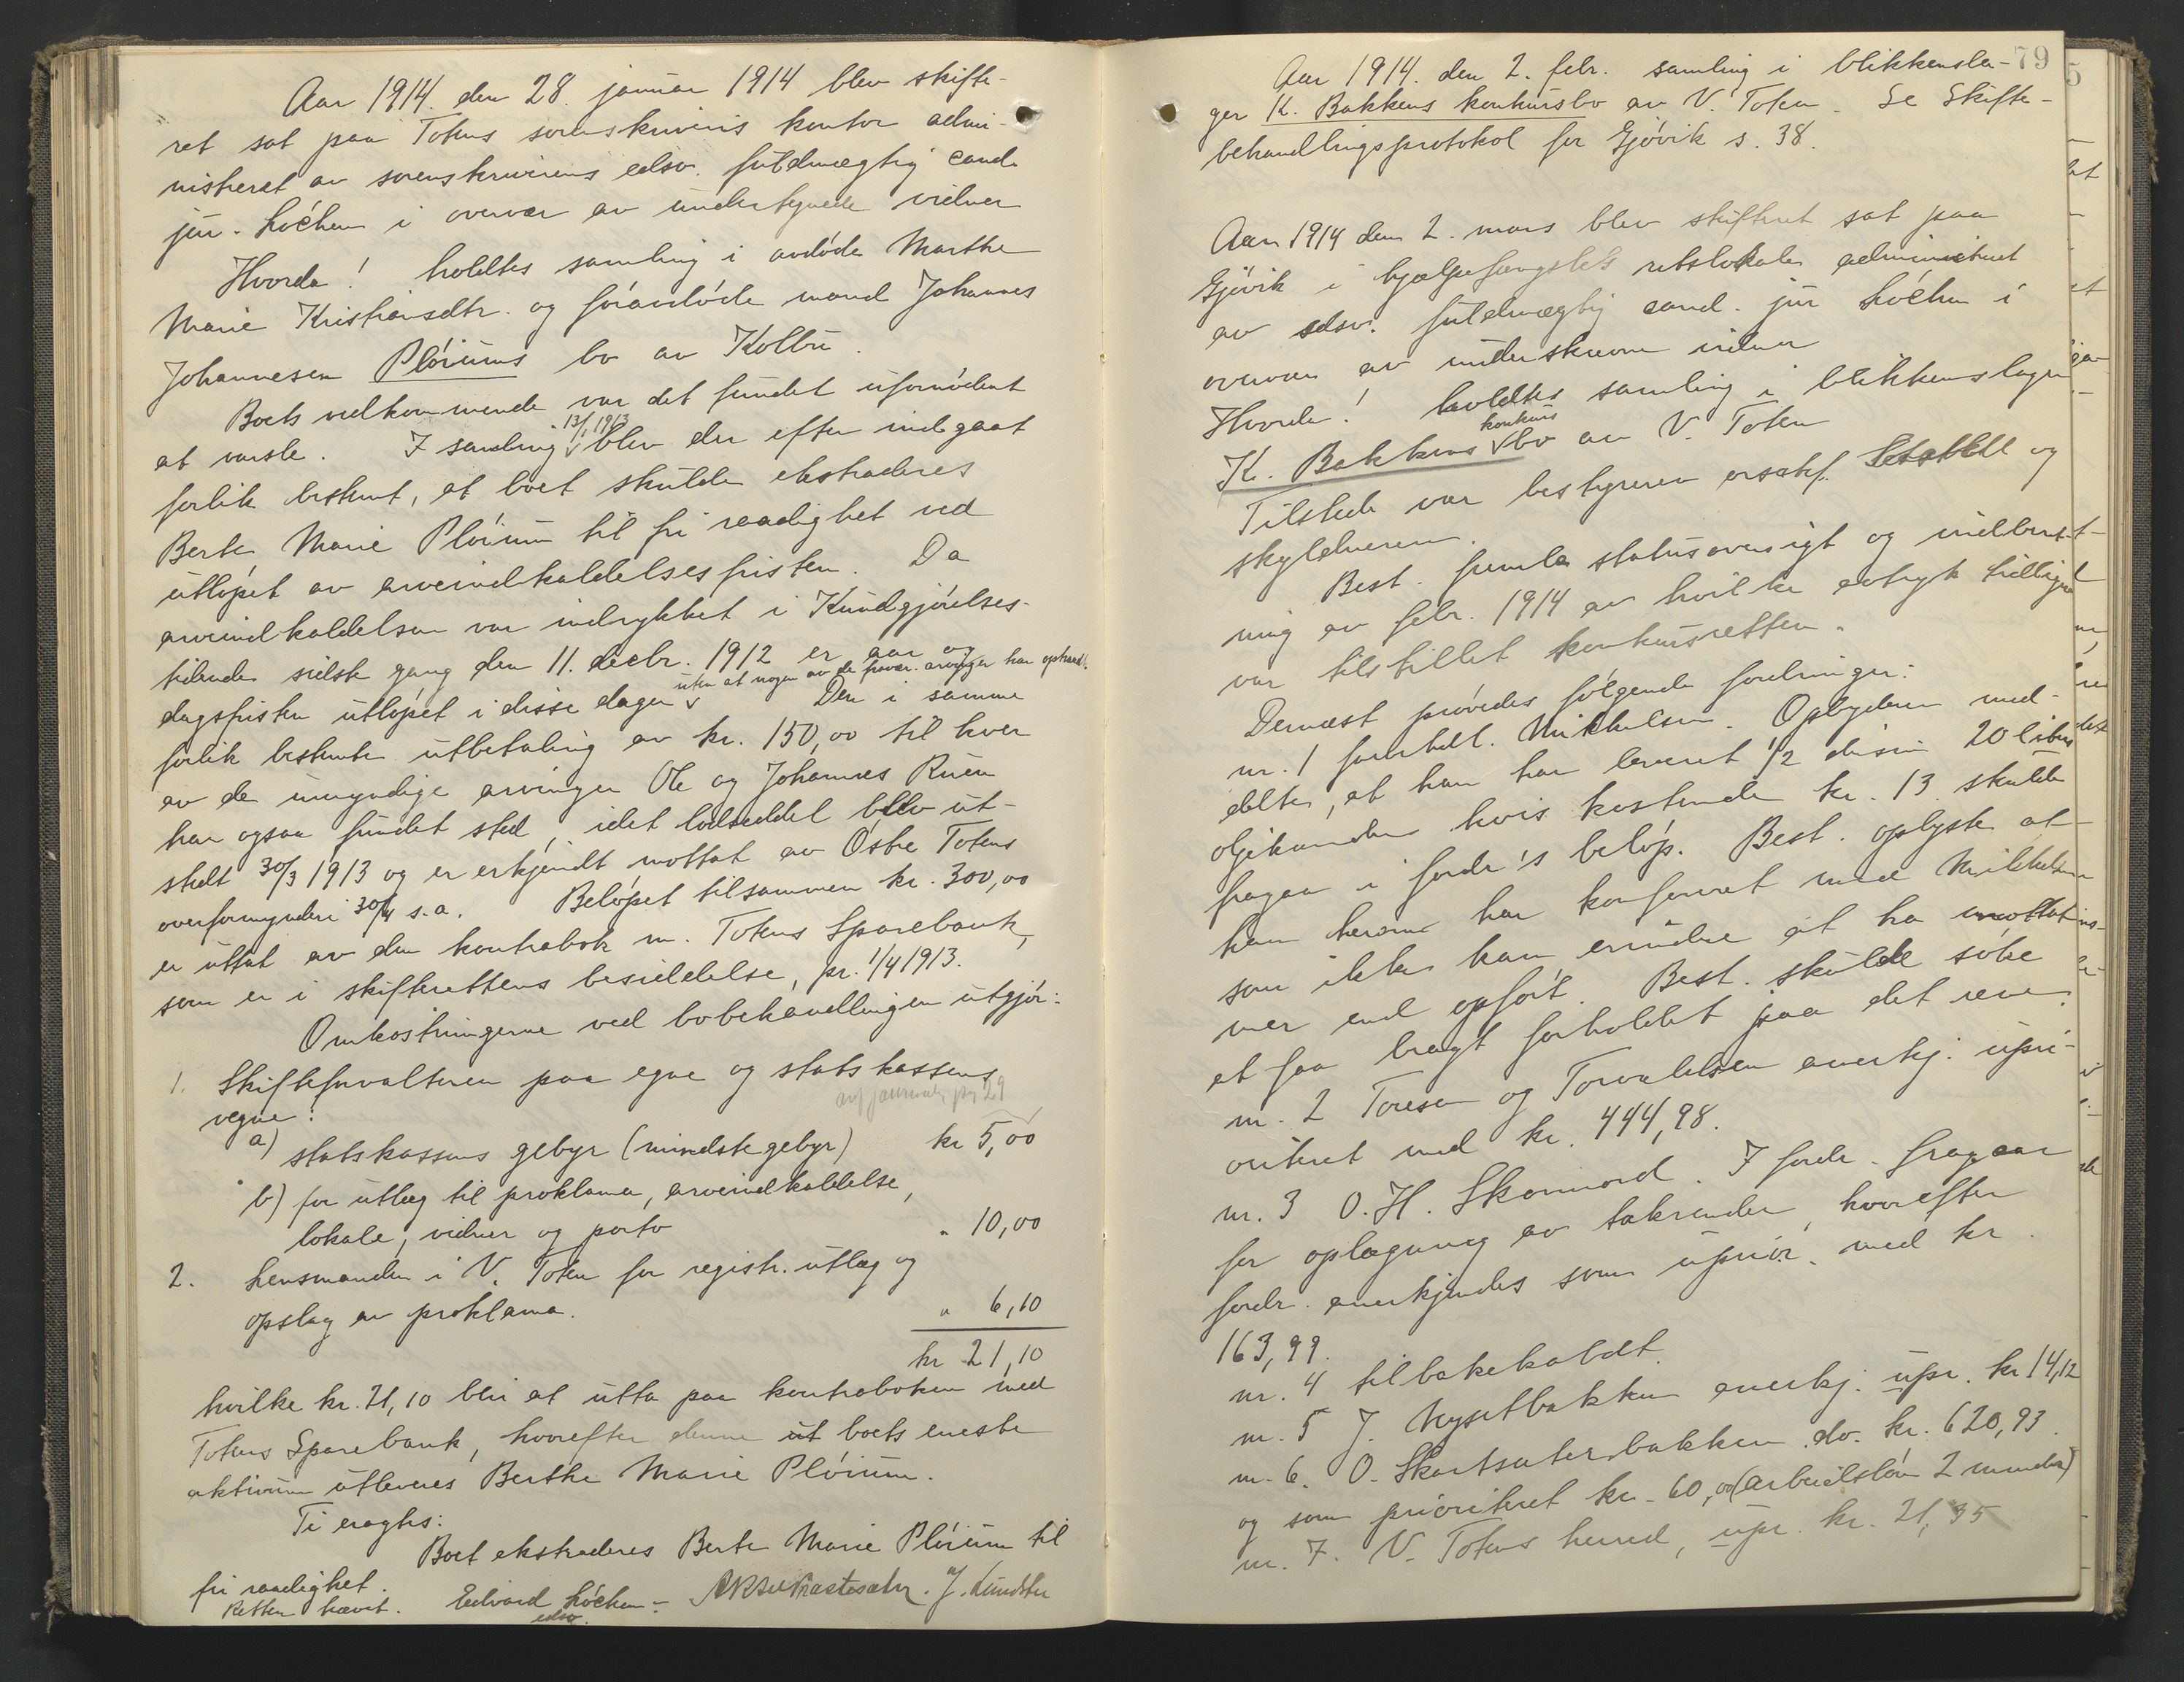 Aar 1914. den 28. januar 1914 blev skifte-
ret sat paa Totens sorenskriveris kontor admi-
nistreret av sorenskriverens edsv. fuldmægtig cand.
jur. Lóchen i overvær av undertegnede vidner
Hvorda! holdtes samling i avdóde Marthe
Marie Kristiansdtr. og fóravdóde mand Johannes
Johannesen Plóiums bo av Kolbu.
Boets vedkommende var det fundet ufornódent
at varsle. I samling 13/1 1913 blev der efter indgaat
forlik bestemt, at boet skulde ekstraderes
Berte Marie Plóium til fri raadighet ved
utlópet av arveindkaldelsesfristen. Da
arveindkaldelsen var indrykket i Kundgjórelses-
tidende sidste gang den 11. decbr. 1912 er aar og
dagsfristen utlópet i disse dager uten at nogen av de fravær. arvinger har optraadt. Den i samme
forlik bestemte utbetaling av kr. 150,00 til hver
av de umyndige arvinger Ole og Johannes Ruen
har ogsaa fundet sted, idet lodseddel blev ut-
stedt 30/3 1913 og er erkjendt mottat av Óstre Totens
overformynderi 30/4 s.a. Belópet tilsammen kr. 300,00
er uttat av den kontrabok m. Totens Sparebank,
som er i skifterettens besiddelse, pr. 1/4 1913.
Omkostningerne ved bobehandlingen utgjór:
1. Skifteforvalteren paa egne og statskassens
vegne:
a) statskassens gebyr (mindste gebyr) kr 5,00
b) for utlæg til proklama, arveindkaldelse,
lokale, vidner og porto " 10,00
2. Lensmanden i V. Toten for registr. utlæg og
opslag av proklama. " 6,10
kr 21,10
hvilke kr. 21,10 blir at utta paa kontraboken med
Totens Sparebank, hvorefter denne ut boets eneste
aktivum utleveres Berthe Marie Plóium.
Ti eragtes:
Boet ekstraderes Berte Marie Plóium til
fri raadighet.
Retten hævet. Edvard Lóchen
edsv.
79
Aar 1914. den 2. febr. samling i blikkensla-
ger K. Bakkens konkursbo av V. Toten. Se Skifte-
behandlingsprotokol for Gjóvik s. 38.
Aar 1914 den 2. mars blev skifteret sat paa
Gjóvik i hjælpefængslets retslokale administreret
av edsv. fuldmægtig cand. jur Lóchen i
overvær av underskrevne vidner
Hvorda! holdtes samling i blikkenslager
K. Bakkens konkurs bo av V. Toten
Tilstede var bestyreren og
skyldneren.
Best. fremla statusoversigt og indberet-
ning av febr. 1914 av hvilke avtryk tidligere
var tilstillet konkursretten.
Dernæst próvedes fólgende fordringer:
nr. 1 Mikkelsen. Opbyderen med-
delte, at han har leveret 1/2 dusin 20 liters
oljekander hvis kostende kr. 13 skulde
fragaa i fordr's belóp. Best. oplyste at
han herom har konferert med Mikkelsen
som ikke kan erindre at ha mottat
mer end opfórt. Best. skulde sóke
at faa bragt forholdet paa det rene.
nr. 2 Toresen og Torvaldsen anerkj. upri-
oriteret med kr. 444,98.
nr. 3 O. H. Skonnord. I fordr. fragaar
for oplægning av takrender, hvorefter
fordr. anerkjendes som uprior. med kr.
163,99.
nr. 4 tilbakekaldt.
nr. 5 J. Nysetbakken anerkj. upr. kr 14,12
nr. 6. O. Skartsæterbakken do. kr. 620,93
og som prioriteret kr. 60,00 (arbeidslón 2 maaneder)
nr. 7. V. Totens herred, upr. kr. 21,35